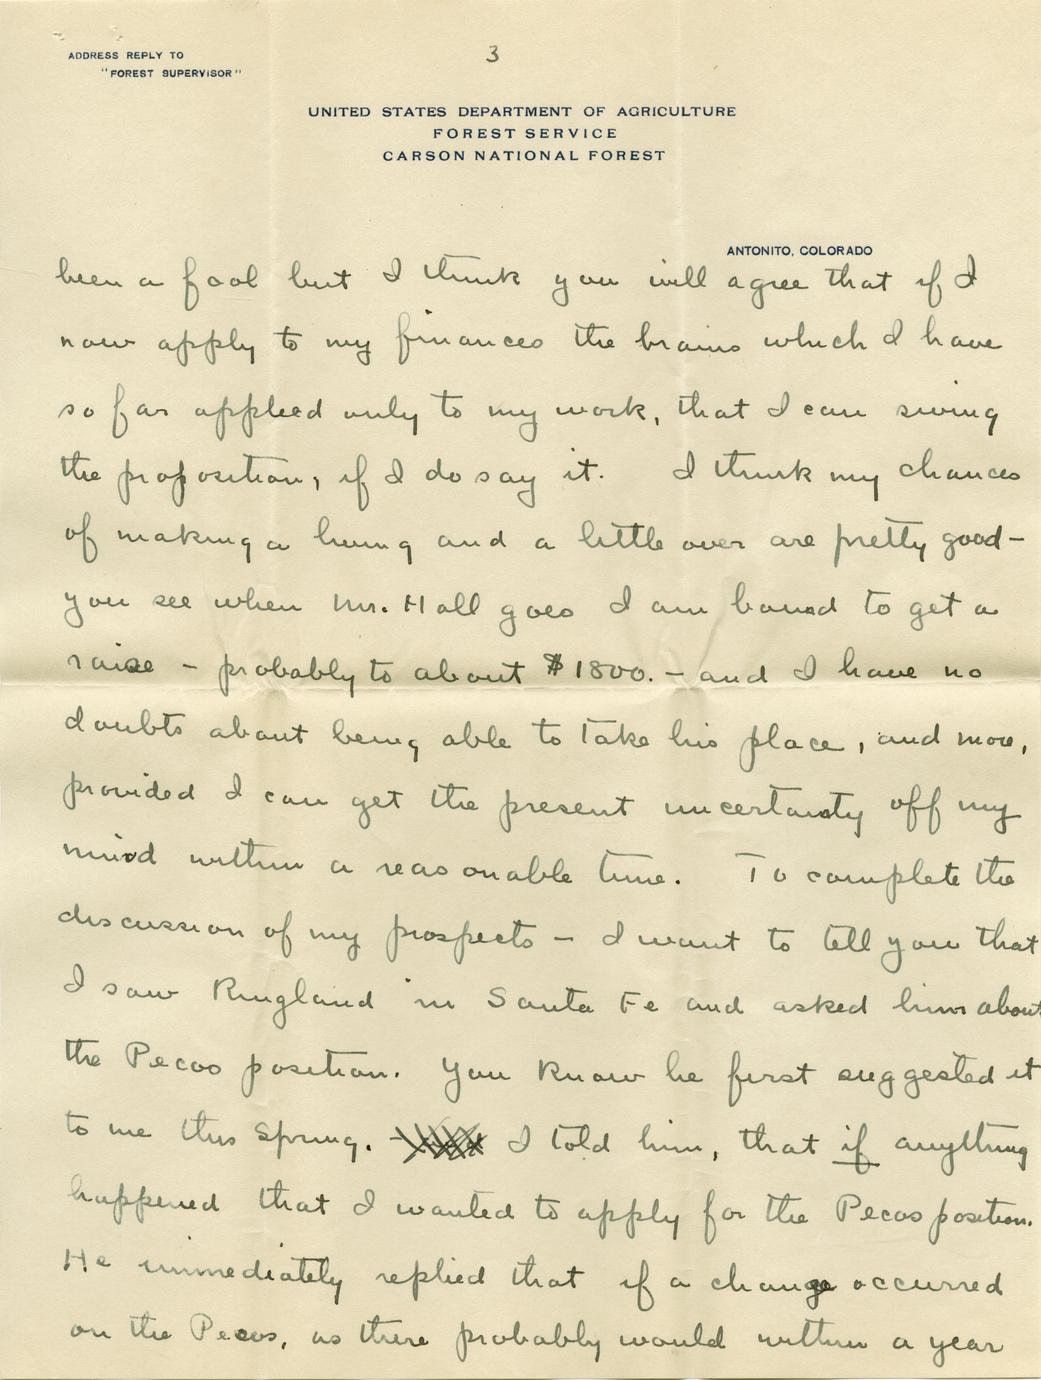 ADDRESS REPLY TO
"FOREST SUPERVISOR"
3
UNITED STATES DEPARTMENT OF AGRICULTURE
FOREST SERVICE
CARSON NATIONAL FOREST
ANTONITO, COLORADO
been a fool but I think you will agree that if I
now apply to my finances the brains which I have
so far applied only to my work, that I can swing
the proposition, if I do say it. I think my chances
of making a living and a little over are pretty good –
you see when Mr. Hall goes I am bound to get a
raise – probably to about $1800. – and I have no
doubts about being able to take his place, and more,
provided I can get the present uncertainty off my
mind within a reasonable time. To complete the
discussion of my prospects – I want to tell you that
I saw Ringland in Santa Fe and asked him about
the Pecos position. You know he first suggested it
to me this Spring. I told him, that if anything
happened that I wanted to apply for the Pecos position.
He immediately replied that if a change occurred
on the Pecos, as there probably would within a year